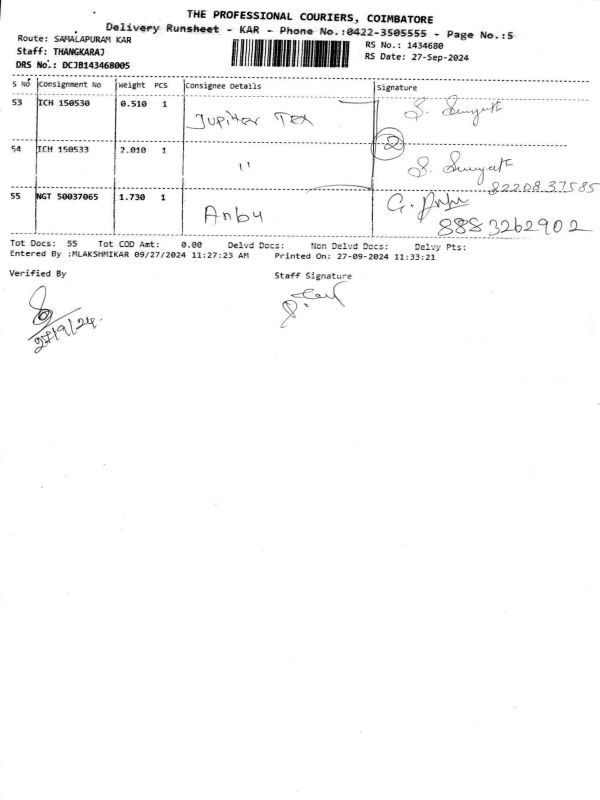 THE PROFESSIONAL COURIERS, COIMBATORE
Delivery Runsheet - KAR - Phone No.:0422-3505555 - Page No.:5
Route: SAMALAPURAM KAR
RS No.: 1434680
Staff: THANGKARAJ
RS Date: 27-Sep-2024
DRS No.: DCJB143468005
S No Consignment No Weight PCS Consignee Details Signature
53 ICH 150530 0.510 1 Jupiter Tex
54 ICH 150533 2.010 1 "
2
82208 37585
55 NGT 50037065 1.730 1 Anbu G. Anbu
888 3262902
Tot Docs: 55 Tot COD Amt: 0.00 Delvd Docs: Non Delvd Docs: Delvy Pts:
Entered By :MLAKSHMIKAR 09/27/2024 11:27:23 AM Printed On: 27-09-2024 11:33:21
Verified By Staff Signature
27/9/24.